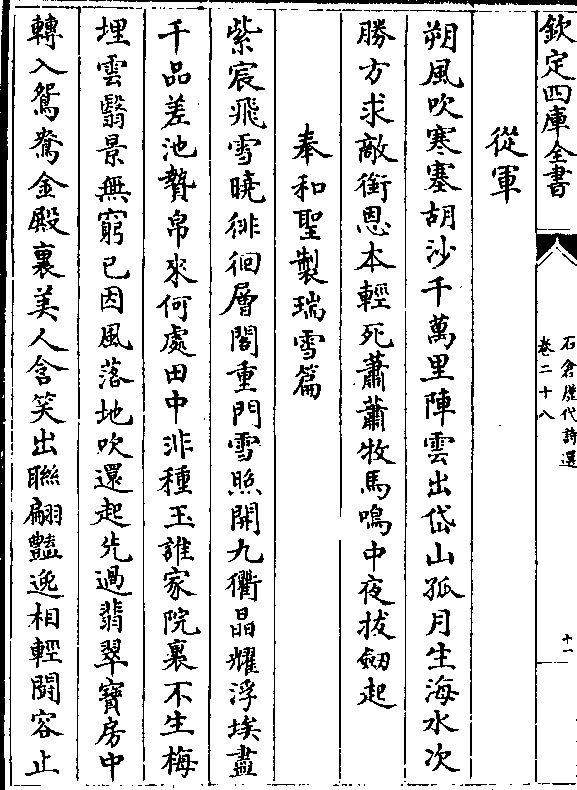 欽定四庫全書
石倉歷代詩選
卷二十八
十一
從軍
朔風吹寒塞胡沙千萬里陣雲出岱山孤月生海水次
勝方求敵銜恩本輕死蕭蕭牧馬鳴中夜拔劒起
奉和聖製瑞雪篇
紫宸飛雪曉徘徊層閣重門雪照開九衢晶耀浮埃盡
千品差池贄帛來何處田中非種玉誰家院裏不生梅
埋雲翳景無窮已因風落地吹還起先過翡翠寶房中
轉入鴛鴦金殿裏美人含笑出聯翩豔逸相輕鬭容止